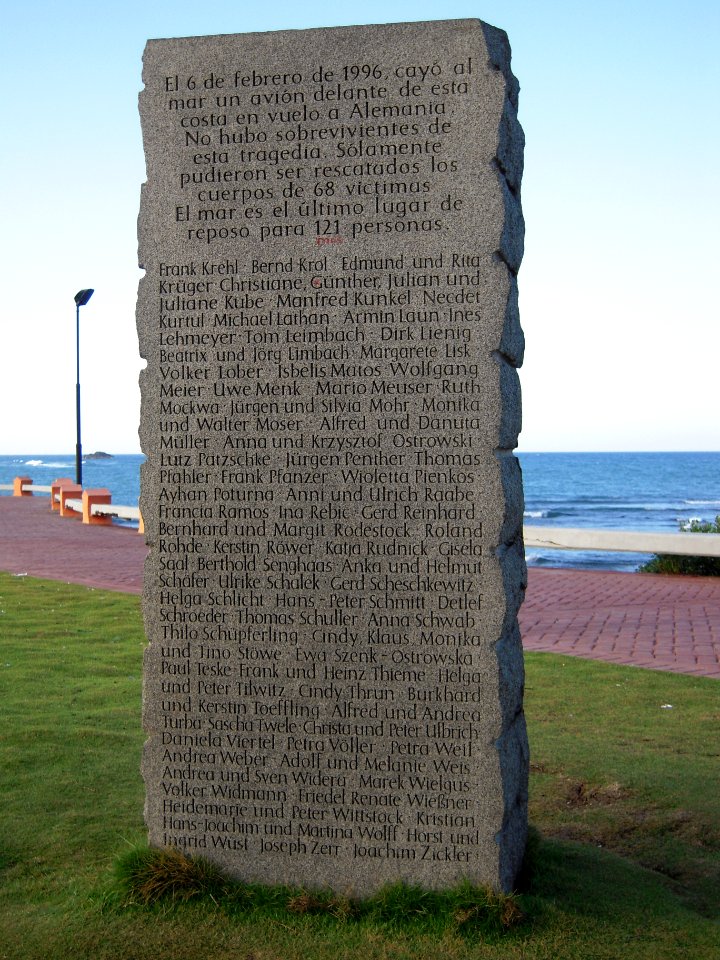 El 6 de febrero de 1996, cayó al
mar un avión delante de esta
costa en vuelo a Alemania.
No hubo sobrevivientes de
esta tragedia. Sólamente
pudieron ser rescatados los
cuerpos de 68 víctimas
El mar es el último lugar de
reposo para 121 personas.
Frank Krehl · Bernd Krol · Edmund und Rita
Krüger Christiane, Günther, Julian und
Juliane Kube · Manfred Kunkel · Necdet
Kurtul · Michael Lathan · Armin Laun · Ines
Lehmeyer · Tom Leimbach · Dirk Lienig ·
Beatrix und Jörg Limbach · Margarete Lisk ·
Volker Lober · Isbelis Matos · Wolfgang
Meier · Uwe Menk · Mario Meuser · Ruth
Mockwa · Jürgen und Silvia Mohr · Monika
und Walter Moser · Alfred und Danuta
Müller · Anna und Krzysztof Ostrowski ·
Lutz Patzschke · Jürgen Penther · Thomas
Pfahler · Frank Pfanzer · Wioletta Pienkos ·
Ayhan Poturna · Anni und Ulrich Raabe ·
Francia Ramos · Ina Rebic · Gerd Reinhard ·
Bernhard und Margit Rodestock · Roland
Rohde · Kerstin Räwer · Katja Rudnick · Gisela
Saal · Berthold Senghaas · Anka und Helmut
Schäfer · Ulrike Schalek · Gerd Scheschkewitz ·
Helga Schlicht · Hans - Peter Schmitt · Detlef
Schroeder · Thomas Schuller · Anna Schwab ·
Thilo Schüpferling · Cindy, Klaus, Monika
und Tino Stöwe · Ewa Szenk - Ostrowska ·
Paul Teske · Frank und Heinz Thieme · Helga
und Peter Tilwitz · Cindy Thrun · Burkhard
und Kerstin Toeffling · Alfred und Andrea
Turba · Sascha Twele · Christa und Peter Ulbrich ·
Daniela Viertel · Petra Völler · Petra Weil ·
Andrea Weber · Adolf und Melanie Weis ·
Andrea und Sven Widera · Marek Wielgus ·
Volker Widmann · Friedel Renate Wießner ·
Heidemarie und Peter Wittstock · Kristian,
Hans-Joachim und Martina Wolff · Horst und
Ingrid Wüst · Joseph Zerr · Joachim Zickler ·